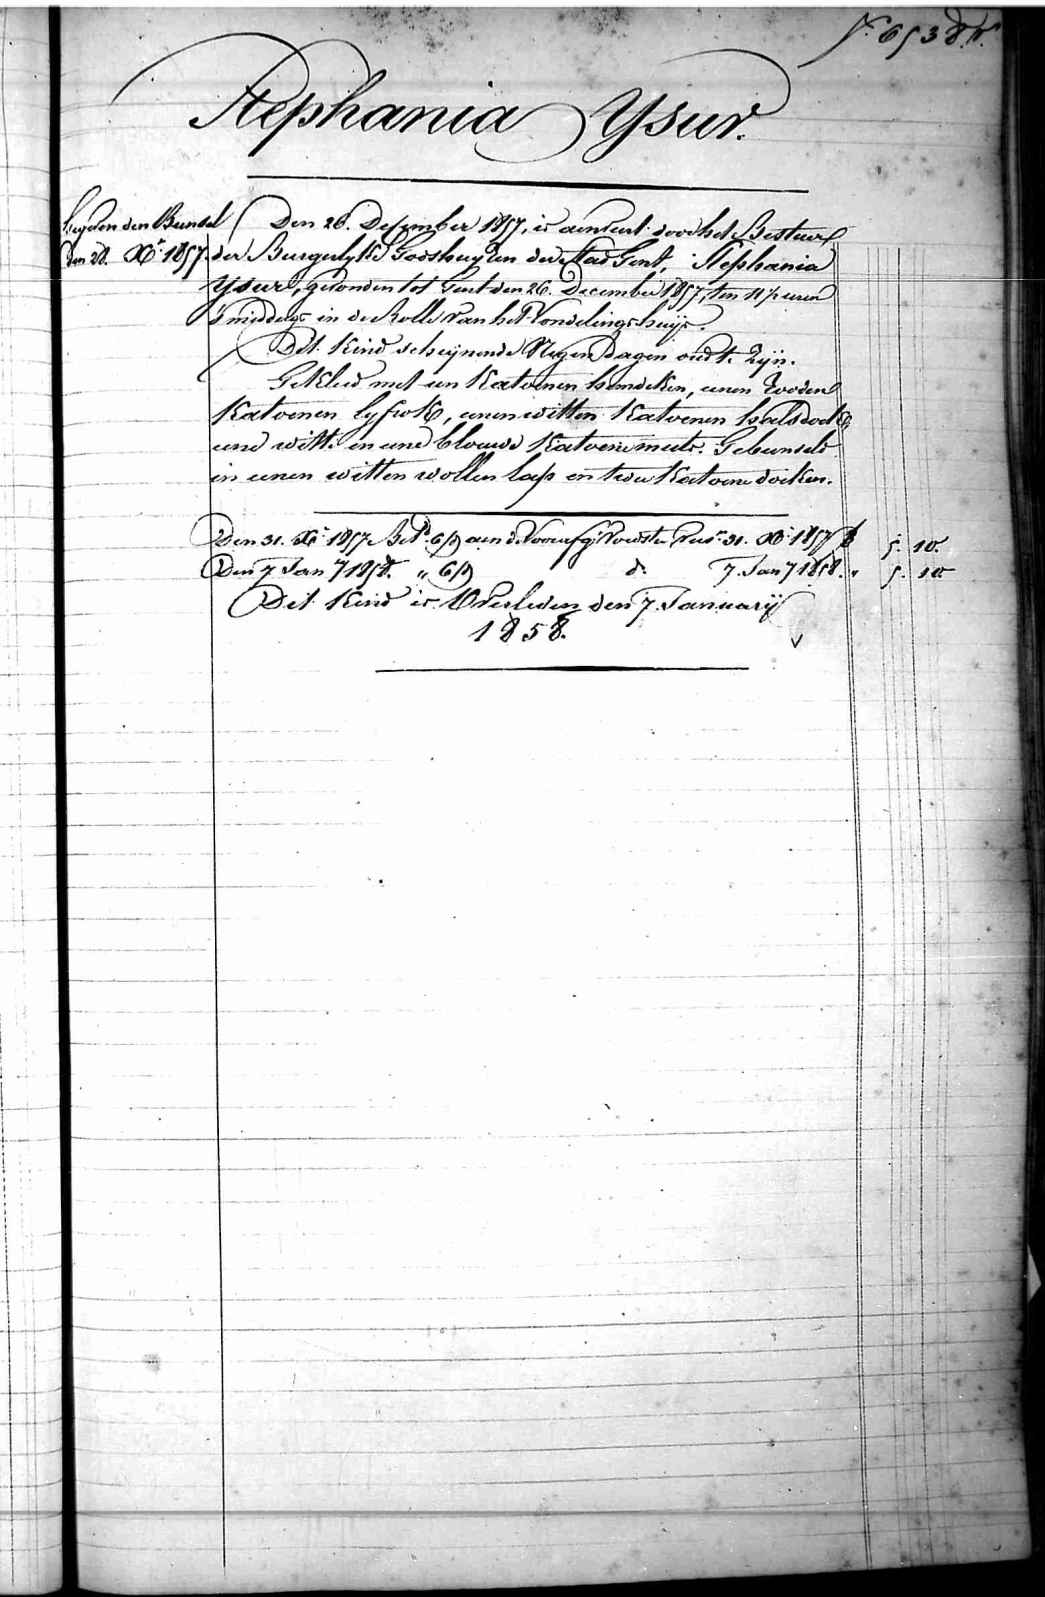 Stephania Ysur.
den 28. Xr. 1857.
Den 26. December 1857, is aenveert door het Bestuer
der Burgerlyke Godshuyzen der Stad Gent, Stephania
Ysur, gevonden tot Gent den 26. December 1857, ten 11½ uren
's middags in de Rolle van het Vondelingshuijs.
Dit Kind scheijnende Negen Dagen oud te zijn.
Gekleed met een Katoenen hemdeken, eenen Rooden
Katoenen lyfrok, eenen witten Katoenen halsdoek,
eene witte en eene blouwe Katoene muts. Gebunseld
in eenen witten wollen lap en twee Katoene doeken.
Den 31. Xr. 1857 31. Xr. 1857 5. 10.
Den 7. Jan 1858. " do. 7. Jan 1858. " 5. 10
Dit Kind is Overleden den 7. January
1858.